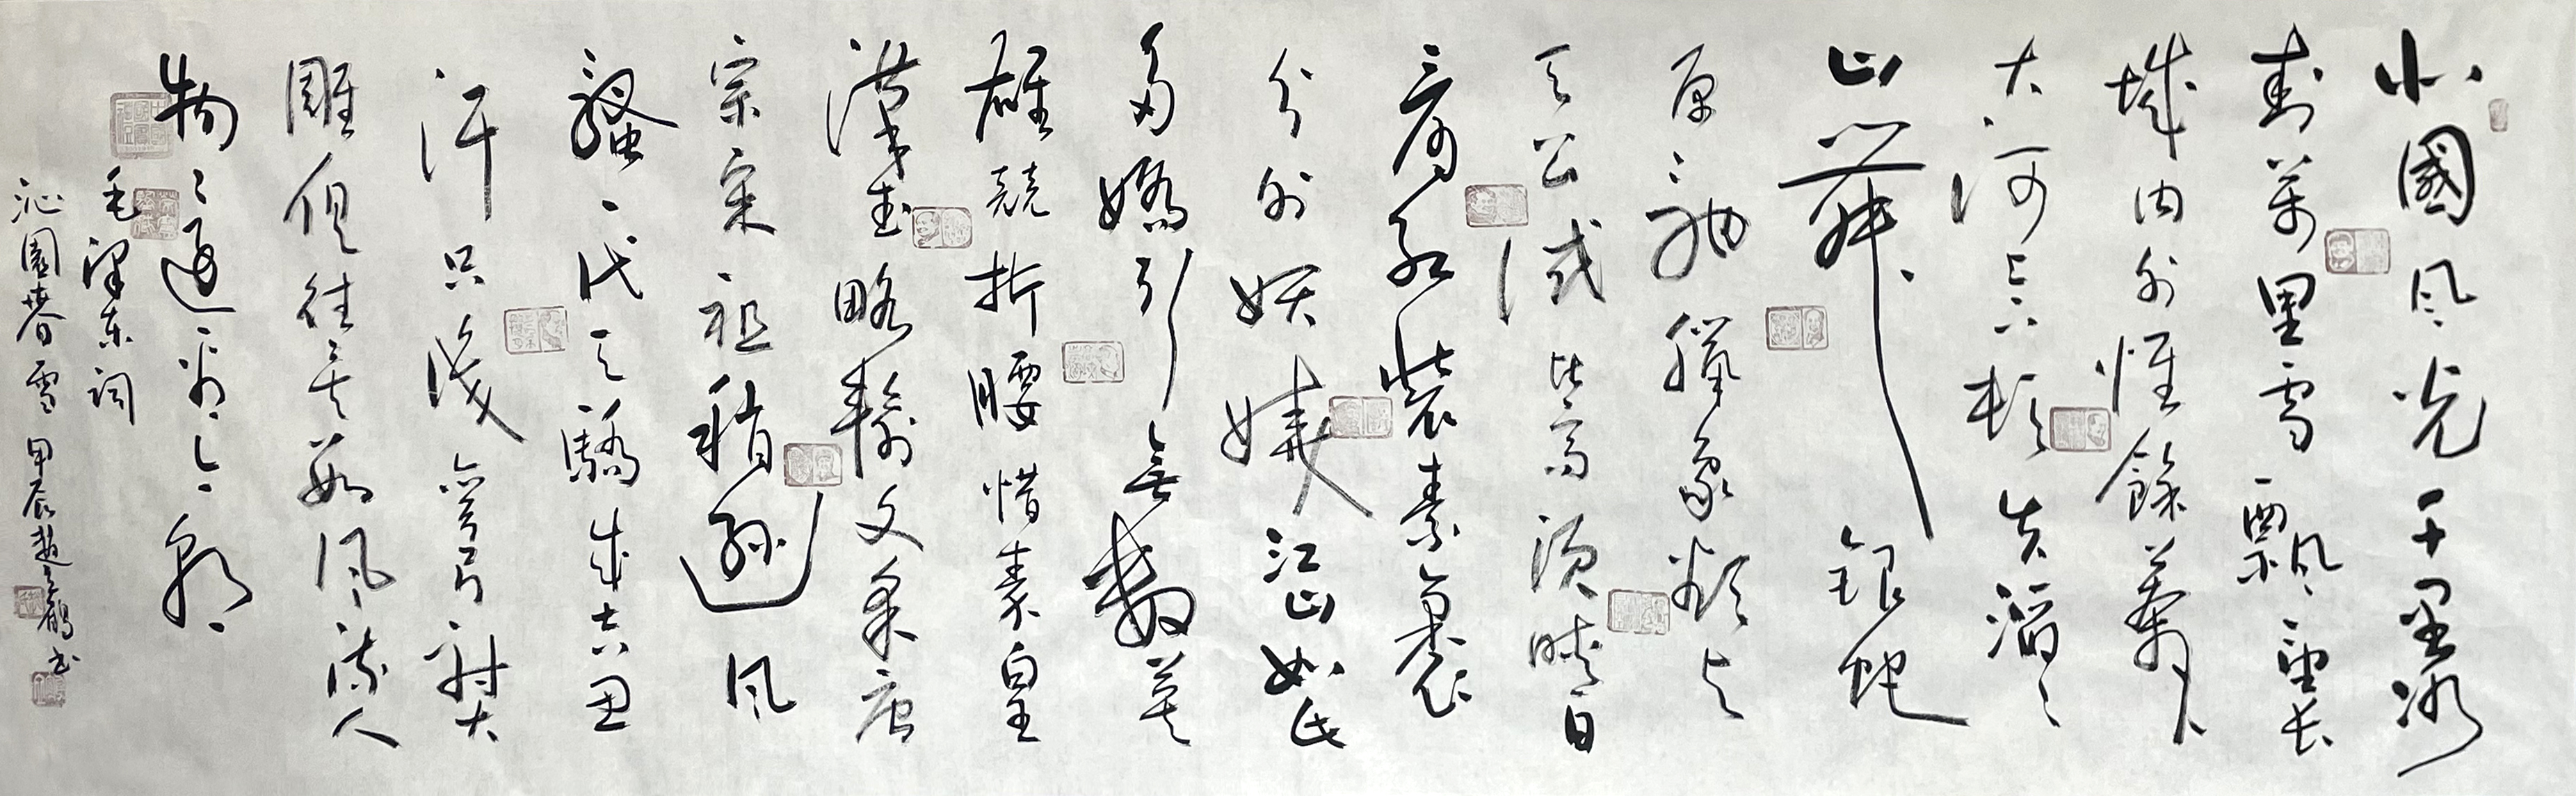 北國风光千里冰
封萬里雪飘望長
城内外惟餘莽々
大河上下頓失滔々
山舞银蛇
原馳臘象欲与
天公試比高須晴日
看红装素裹
分外妖嬈江山如此
多嬌引無數英
雄競折腰惜秦皇
漢武略輸文采唐
宗宋祖稍遜风
騷一代天驕成吉思
汗只識彎弓射大
雕俱往矣數风流人
物還看今朝
毛澤东词
沁園春雪 甲辰趙鶴书